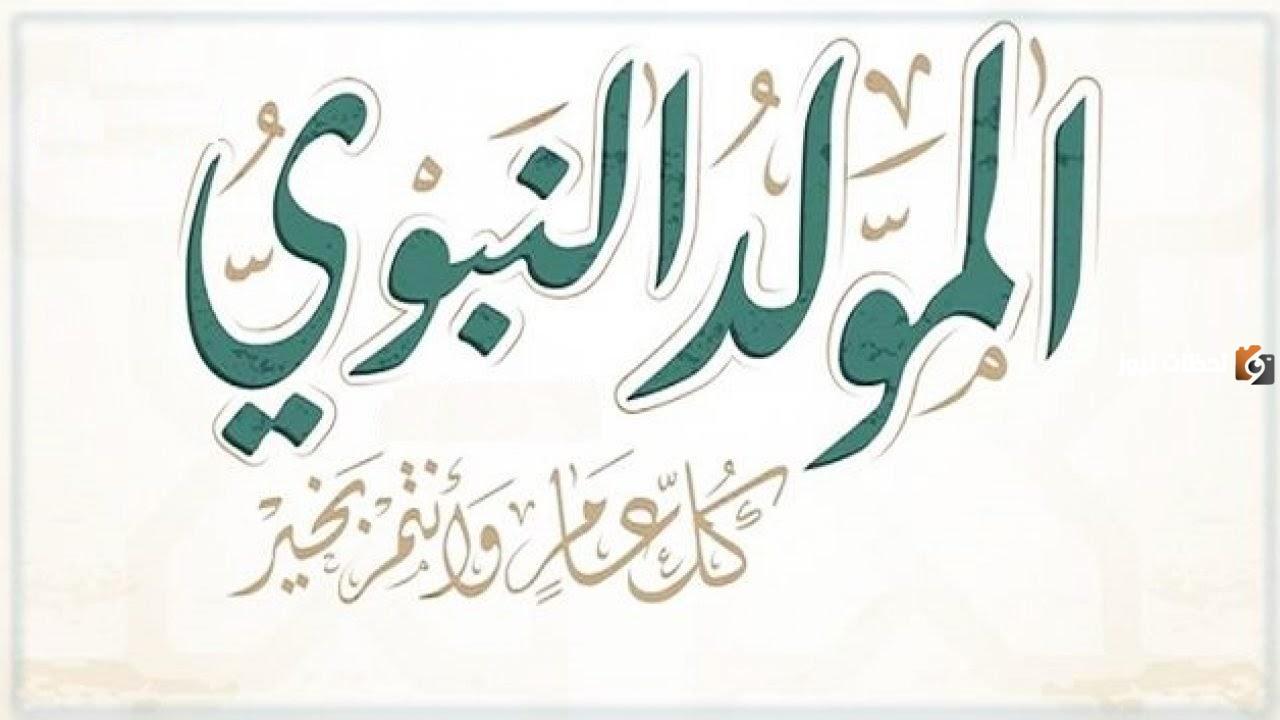 المَوْلِدُ النَّبَوِيُّ
كُلُّ عَامٍ وَأَنْتُمْ بِخَيْرٍ
لحظات نيوز